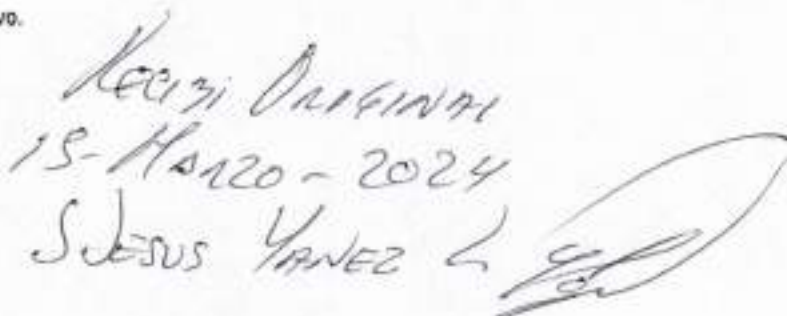 vo.
Recibi Original
15-Marzo-2024
S Jesus Yanez L